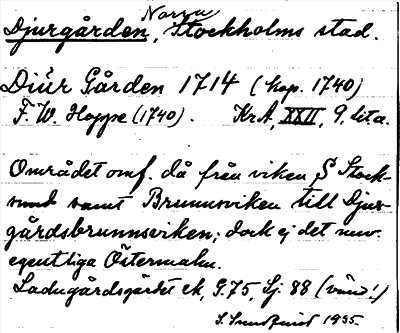 Norra
Djurgården, Stockholms stad.
Diur Gården 1714 (kop. 1740)
F. W. Hoppe (1740). KrA, XXII, 9, lit. a.
Området omf. då från viken S Stock-
sund samt Brunnsviken till Djur-
gårdsbrunnsviken; dock ej det nuv.
egentliga Östermalm.
Ladugårdsgärdet ek, S. 75, Lj 88 (vänd!)
1935.